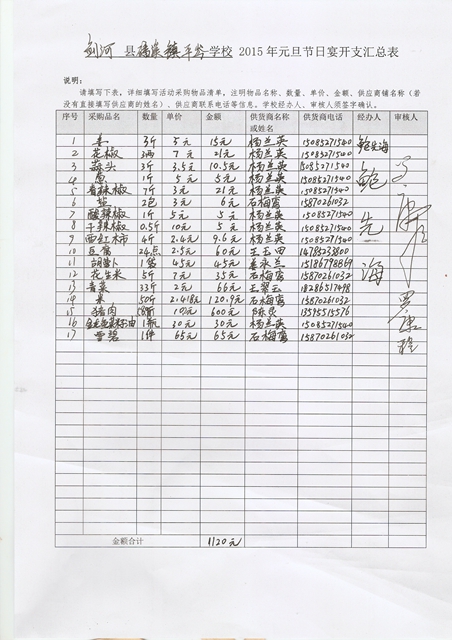 剑河 县 镇 学校 2015 年元旦节日宴开支汇总表
说明：
请填写下表，详细填写活动采购物品清单，注明物品名称、数量、单价、金额、供应商铺名称（若
没有直接填写供应商的姓名）、供应商联系电话等信息，学校经办人、审核人须签字确认。
序号 采购品名 数量 单价 金额 供货商名称或姓名 供货商电话 经办人 审核人
1 姜 3斤 5元 15元 杨兰英 15085271540
2 花椒 3两 7元 21元 杨兰英 15085271540
3 蒜头 3斤 3.5元 10.5元 杨兰英 15085271540
4 葱 1斤 5元 5元 杨兰英 15085271540
5 青辣椒 7斤 3元 21元 杨兰英 15085271540
6 盐 2包 3元 6元 石梅鸾 15870261032
7 酸辣椒 1斤 5元 5元 杨兰英 15085271540
8 干辣椒 0.5斤 10元 5元 杨兰英 15085271540
9 西红柿 4斤 2.4元 9.6元 杨兰英 15085271540
10 豆腐 24点 2.5元 60元 14785233800
11 胡萝卜 1袋 45元 45元 15186798869
12 花生米 5斤 7元 35元 石梅鸾 15870261032
13 青菜 33斤 2元 66元 王翠云 18286517498
14 米 50斤 2.418元 120.9元 石梅鸾 15870261032
15 猪肉 10元 600元 陈良 13595515576
16 油 1瓶 30元 30元 杨兰英 15085271540
17 雪碧 1件 65元 65元 石梅鸾 15870261032
金额合计 1120元